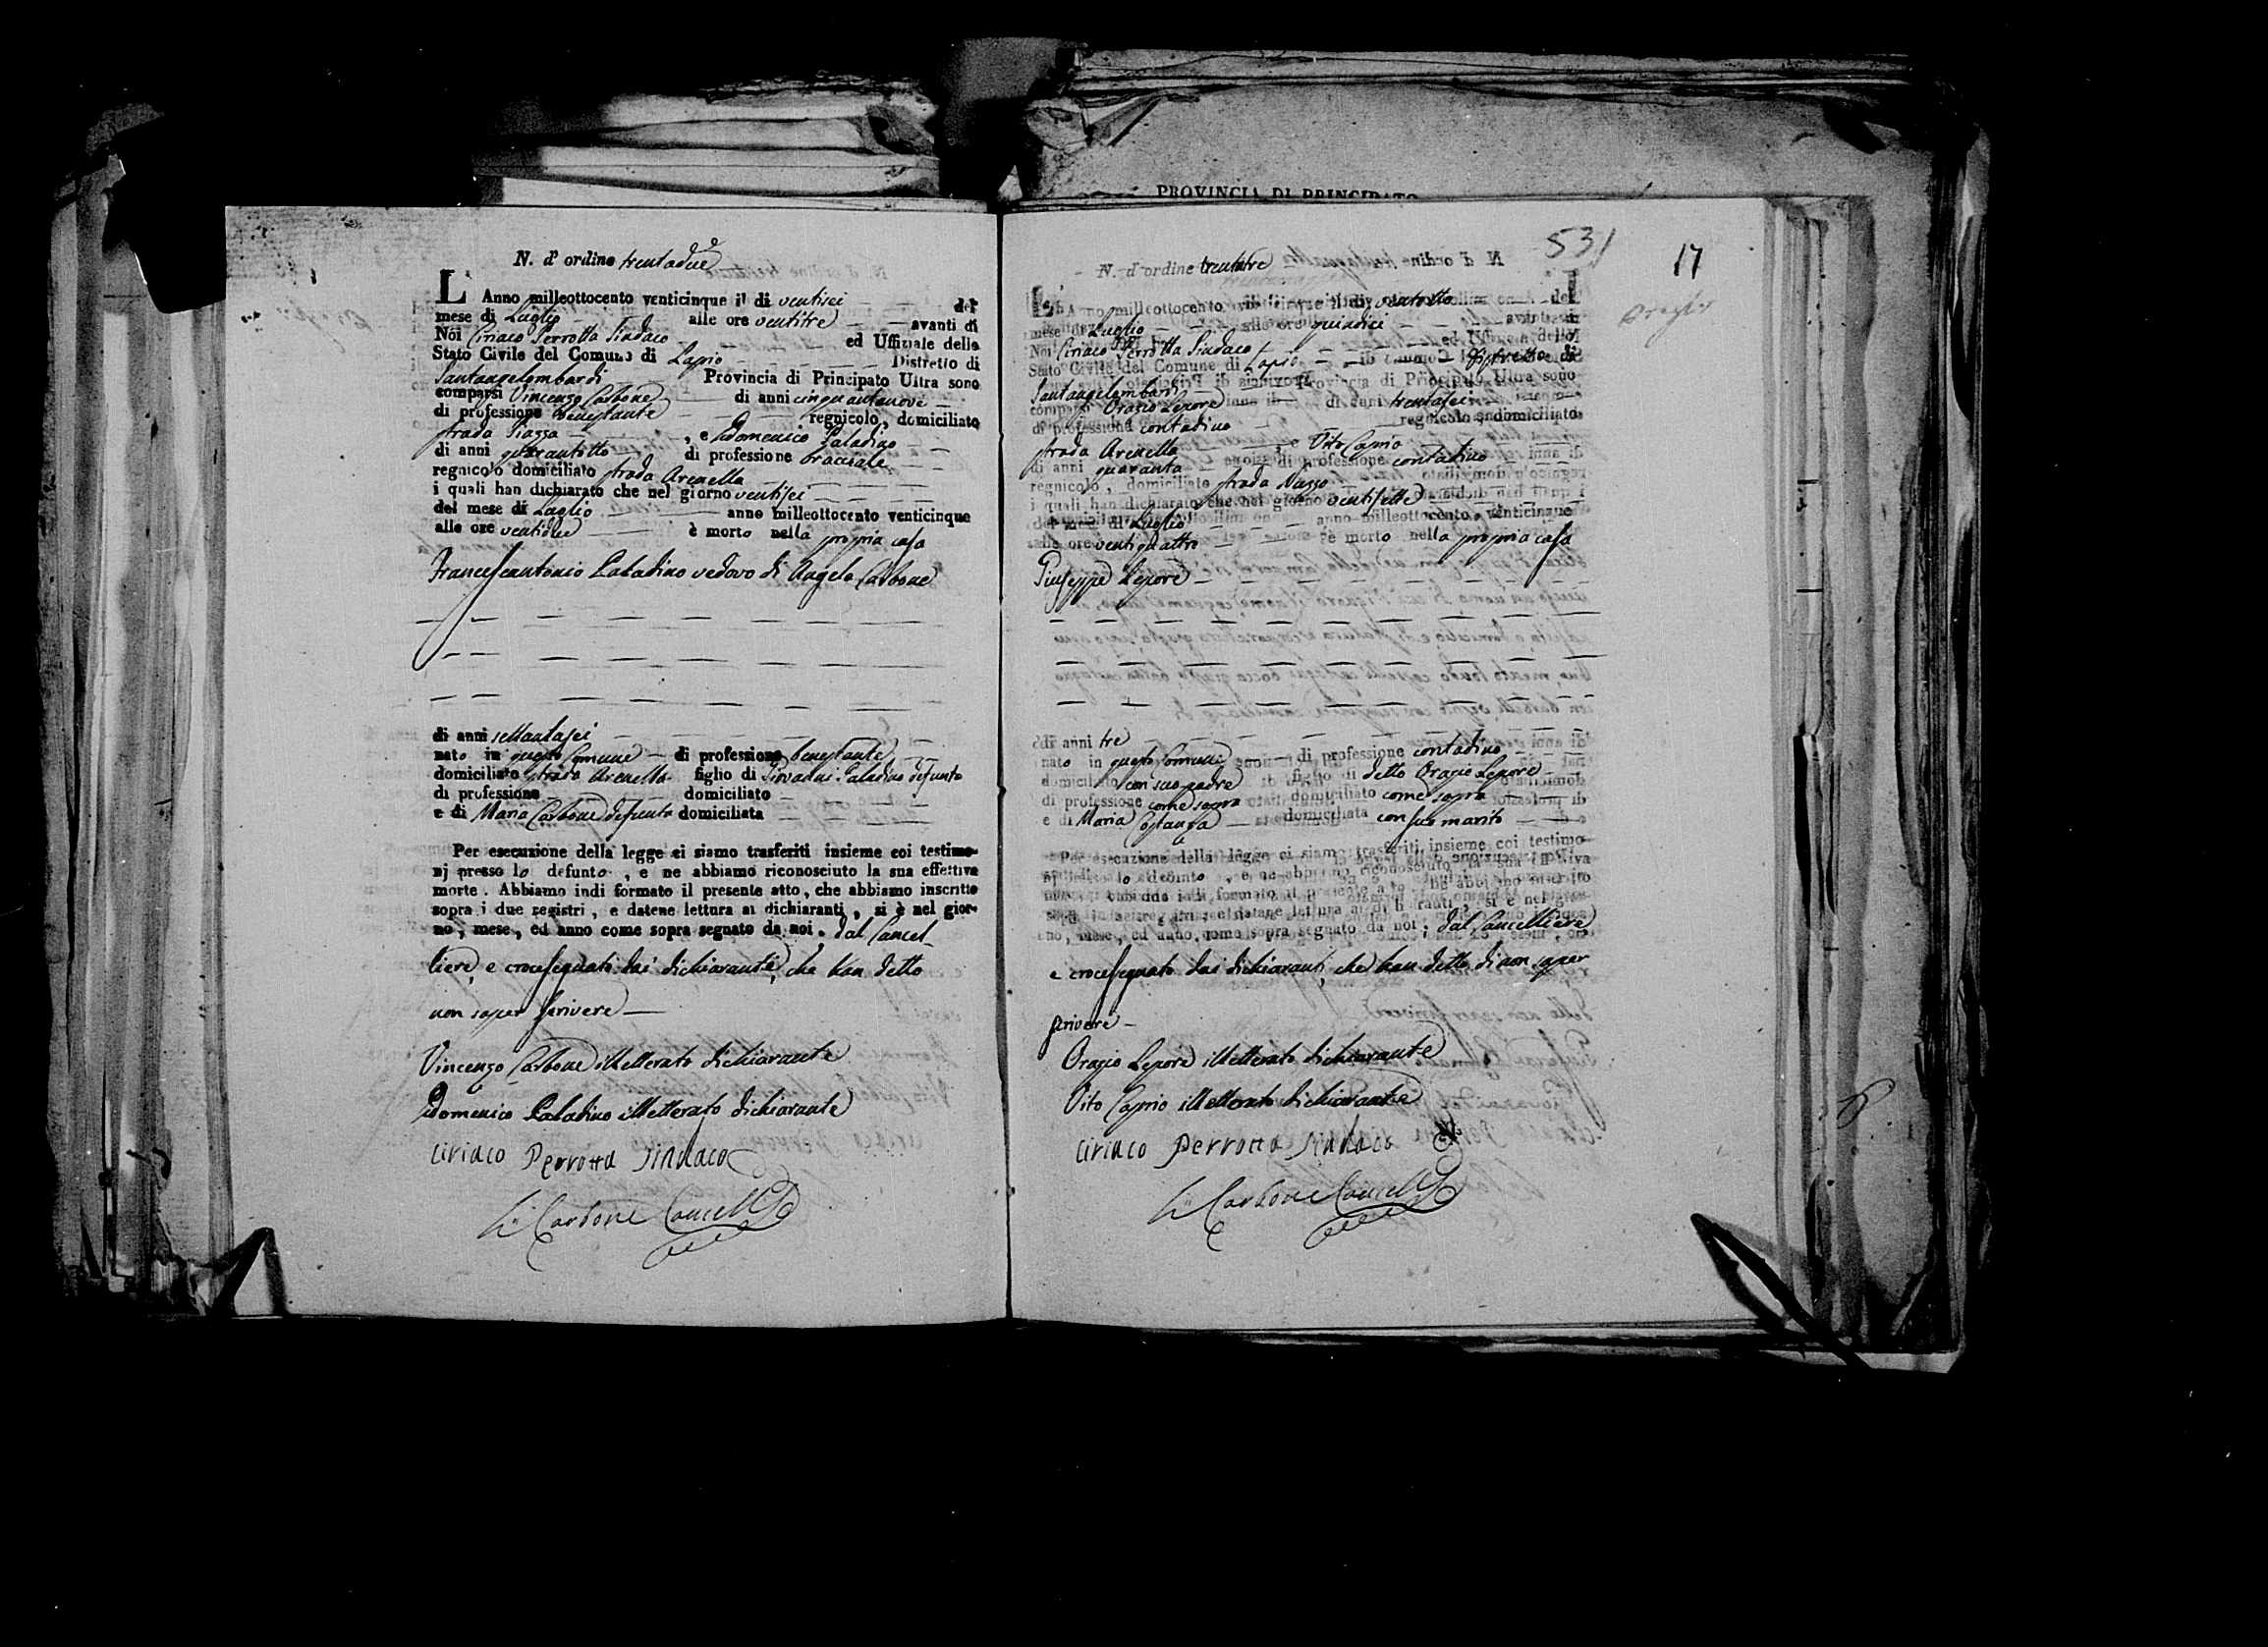 PROVINCIA DI PRINCIPATO
N. d' ordine trentadue
L' Anno milleottocento venticinque il dì ventisei del
mese di Luglio alle ore ventitre avanti di
Noi Ciriaco Perrotta Sindaco ed Uffiziale dello
Stato Civile del Comune di Lapio Distretto di
Santangelombardi Provincia di Principato Ultra sono
comparsi Vincenzo Carbone di anni cinquantanove
di professione benestante regnicolo, domiciliato
strada Piazza , e Domenico Paladino
di anni quarantotto di professione bracciale
regnicolo domiciliato strada Arenella
i quali han dichiarato che nel giorno ventisei
del mese di Luglio anno milleottocento venticinque
alle ore ventidue è morto nella propria casa
Francescantonio Paladino vedovo di Angela Carbone
di anni settantasei
nato in questo Comune di professione benestante
domiciliato strada Arenella figlio di Giovanni Paladino defunto
di professione domiciliato
e di Maria Carbone defunta domiciliata
Per esecuzione della legge ci siamo trasferiti insieme coi testimo-
nj presso lo defunto , e ne abbiamo riconosciuto la sua effettiva
morte. Abbiamo indi formato il presente atto, che abbiamo inscritto
sopra i due registri, e datene lettura ai dichiaranti, si è nel gior-
no, mese, ed anno come sopra segnato da noi, dal Cancel-
liere, e crocesegnato dai dichiaranti, che han detto
non saper scrivere
Vincenzo Carbone illetterato dichiarante
Domenico Paladino illetterato dichiarante
Ciriaco Perrotta Sindaco
Carbone Cancell
531
17
N. d' ordine trentatre
L' Anno milleottocento venticinque il dì ventotto del
mese di Luglio alle ore quindici avanti di
Noi Ciriaco Perrotta Sindaco ed Uffiziale dello
Stato Civile del Comune di Lapio Distretto di
Santangelombardi Provincia di Principato Ultra sono
comparsi Orazio Lepore di anni trentasei
di professione contadino regnicolo domiciliato
strada Arenella , e Vito Caprio
di anni quaranta di professione contadino
regnicolo, domiciliato strada
i quali han dichiarato che nel giorno ventisette
del mese di Luglio anno milleottocento venticinque
alle ore ventiquattro è morto nella propria casa
Giuseppe Lepore
di anni tre
nato in questo Comune di professione contadino
domiciliato con suo padre figlio di detto Orazio Lepore
di professione come sopra domiciliato come sopra
e di Maria Costanza domiciliata con suo marito
Per esecuzione della legge ci siamo trasferiti insieme coi testimo-
nj presso lo defunto , e ne abbiamo riconosciuto la sua effettiva
morte. Abbiamo indi formato il presente atto, che abbiamo inscritto
sopra i due registri, e datene lettura ai dichiaranti, si è nel gior-
no, mese, ed anno come sopra segnato da noi, dal Cancelliere
e crocesegnato dai dichiaranti, che han detto di non saper
scrivere
Orazio Lepore illetterato dichiarante
Vito Caprio illetterato dichiarante
Ciriaco Perrotta Sindaco
Carbone Cancell